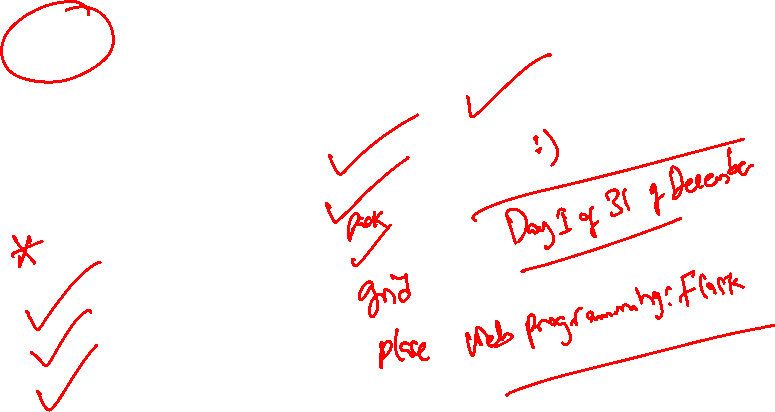 :)
Day 1 of 31 of December
pack
grid
place
Web programming: Flask